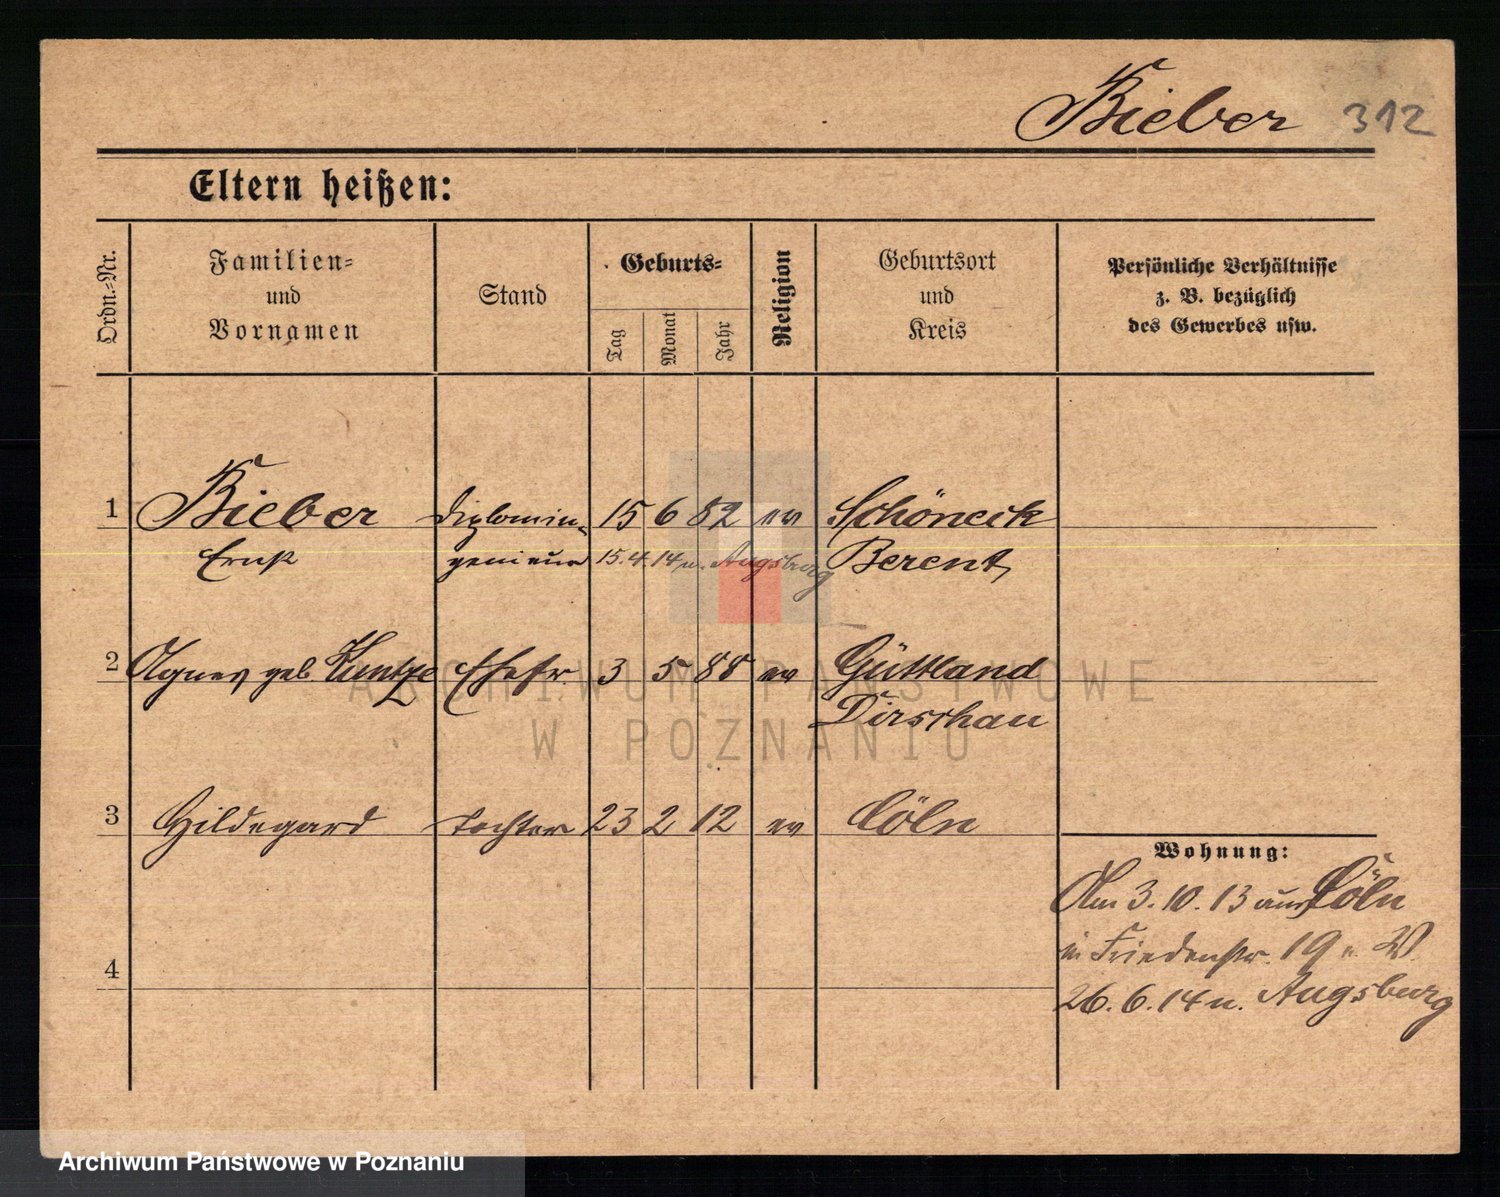 Bieber 312
Eltern heißen:
Ordn.-Nr.
Familien-
und
Vornamen
Stand
Geburts-
Tag
Monat
Jahr
Religion
Geburtsort
und
Kreis
Persönliche Verhältnisse
z. B. bezüglich
des Gewerbes usw.
1 Bieber Diplomin- 15 6 82 ev Schöneck
Ernst genieur 15.4.14 n. Augsburg Berent
2 Agnes geb Kuntze Ehefr. 3 5 88 ev Güttland
Dirschau
3 Hildegard Tochter 23 2 12 ev Cöln
4
Wohnung:
Am 3.10.13 aus Cöln
in Friedenstr. 19 W.
26.6.14 n. Augsburg
ARCHIWUM PAŃSTWOWE
W POZNANIU
Archiwum Państwowe w Poznaniu